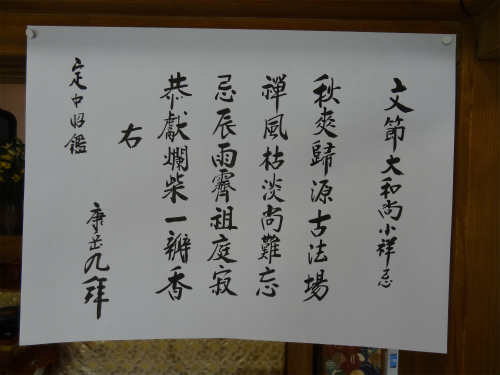 文節大和尚小祥忌
秋爽歸源古法場
禪風枯淡尚難忘
忌辰雨霽祖庭寂
恭獻爛柴一瓣香
右
定中昭鑑
康芷九拜